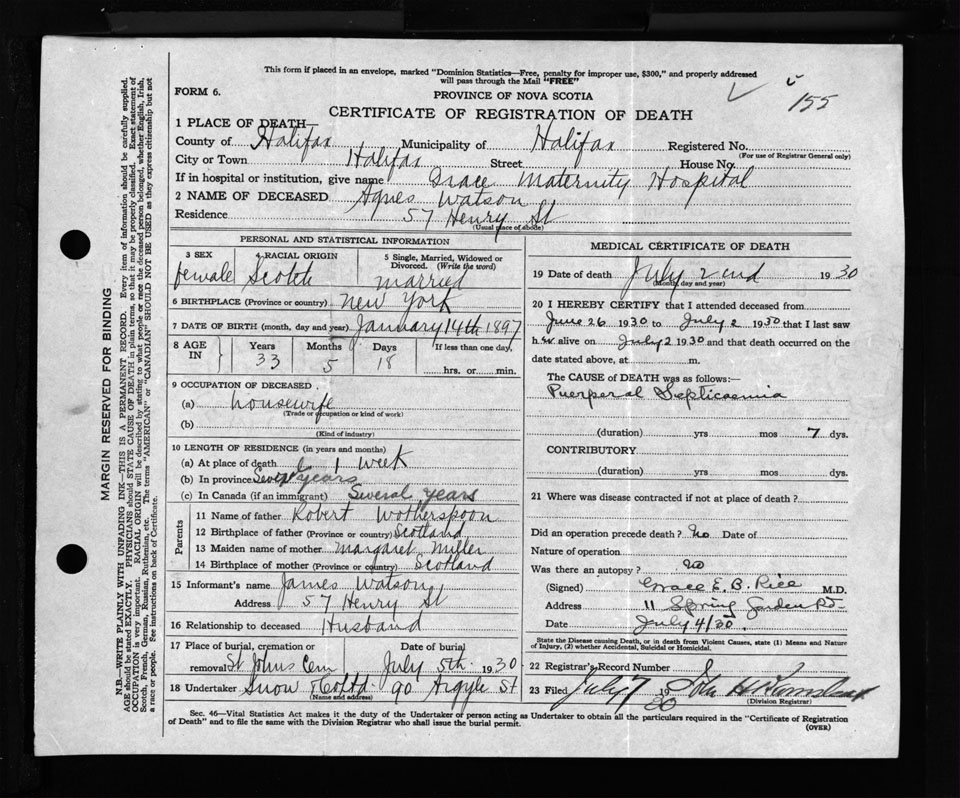 This form if placed in an envelope, marked "Dominion Statistics—Free, penalty for improper use, $300," and properly addressed
will pass through the Mail "FREE"
155
FORM 6.
PROVINCE OF NOVA SCOTIA
CERTIFICATE OF REGISTRATION OF DEATH
1 PLACE OF DEATH—
County of Halifax Municipality of Halifax Registered No.
(For use of Registrar General only)
City or Town Halifax Street House No.
If in hospital or institution, give name Grace Maternity Hospital
2 NAME OF DECEASED Agnes Watson
Residence 57 Henry St
(Usual place of abode)
PERSONAL AND STATISTICAL INFORMATION
3 SEX 4 RACIAL ORIGIN 5 Single, Married, Widowed or
Divorced. (Write the word)
female Scotch married
6 BIRTHPLACE (Province or country) New York
7 DATE OF BIRTH (month, day and year) January 14th 1897
8 AGE IN Years Months Days If less than one day,
33 5 18 hrs. or min.
9 OCCUPATION OF DECEASED
(a) housewife
(Trade or occupation or kind of work)
(b)
(Kind of industry)
10 LENGTH OF RESIDENCE (in years and months)
(a) At place of death 1 week
(b) In province Several years
(c) In Canada (if an immigrant) Several years
Parents
11 Name of father Robert Wotherspoon
12 Birthplace of father (Province or country) Scotland
13 Maiden name of mother Margaret Miller
14 Birthplace of mother (Province or country) Scotland
15 Informant's name James Watson
Address 57 Henry St
16 Relationship to deceased Husband
17 Place of burial, cremation or Date of burial
removal St Johns Cem July 5th 1930
18 Undertaker Snow & Co Ltd 90 Argyle St
(Name and address)
MEDICAL CERTIFICATE OF DEATH
19 Date of death July 2end 1930
(Month, day and year)
20 I HEREBY CERTIFY that I attended deceased from
June 26 1930 to July 2 1930 that I last saw
her alive on July 2 1930 and that death occurred on the
date stated above, at m.
The CAUSE OF DEATH was as follows:—
Puerperal Septicaemia
(duration) yrs mos 7 dys.
CONTRIBUTORY
(duration) yrs mos dys.
21 Where was disease contracted if not at place of death?
Did an operation precede death? no Date of
Nature of operation
Was there an autopsy? no
(Signed) Grace E. B. Rice M.D.
Address 11 Spring Garden Rd
Date July 4/30.
State the Disease causing Death, or in death from Violent Causes, state (1) Means and Nature
of Injury, (2) whether Accidental, Suicidal or Homicidal.
22 Registrar's Record Number
23 Filed July 7 1930 John H
(Division Registrar)
Sec. 46—Vital Statistics Act makes it the duty of the Undertaker or person acting as Undertaker to obtain all the particulars required in the "Certificate of Registration
of Death" and to file the same with the Division Registrar who shall issue the burial permit.
(OVER)
MARGIN RESERVED FOR BINDING
N.B.—WRITE PLAINLY WITH UNFADING INK—THIS IS A PERMANENT RECORD. Every item of information should be carefully supplied.
AGE should be stated EXACTLY. PHYSICIANS should STATE CAUSE OF DEATH in plain terms, so that it may be properly classified. Exact statement of
OCCUPATION is very important. RACIAL ORIGIN will be described by stating to what people or race the deceased person belonged, whether English, Irish,
Scotch, French, German, Russian, Ruthenian, etc. The terms "AMERICAN" or "CANADIAN" SHOULD NOT BE USED as they express citizenship but not
a race or people. See instructions on back of Certificate.